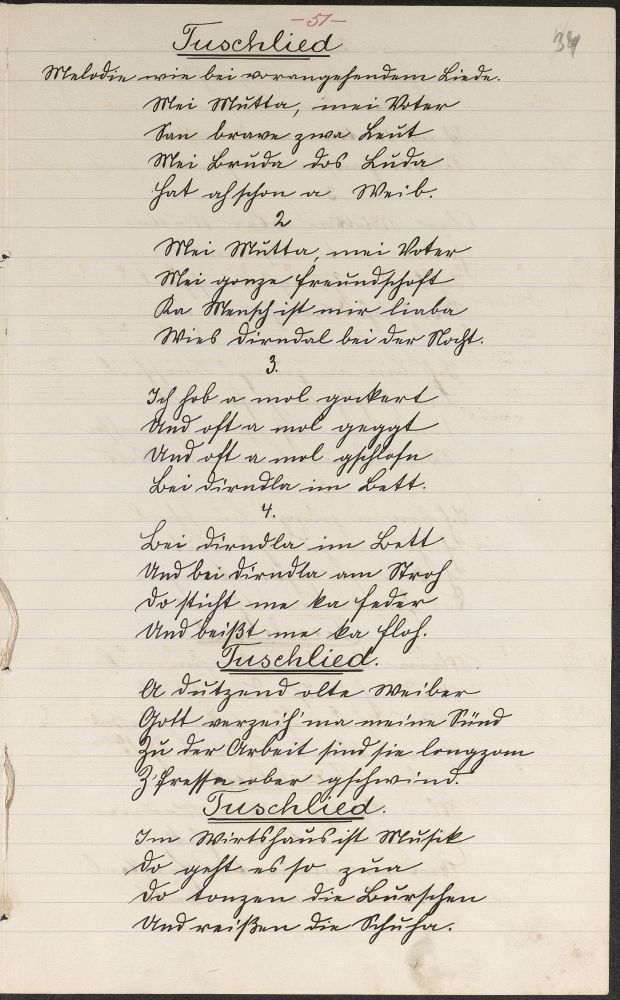 -51-
34
Tuschlied
Melodie wie bei vorangehendem Liede.
Mei Mutta, mei Voter
San brave zwa Leut
Mei Bruda dos Luda
Hat ah schon a Weib.
2
Mei Mutta, mei Voter
Mei gonze Freundschoft
Ka Mensch ist mir liaba
Wies Dirndal bei der Nocht.
3.
Ich hob a mol gockert
Und oft a mol geggt
Und oft a mol gschlofn
Bei Dirndla im Bett.
4.
Bei Dirndla im Bett
Und bei Dirndla am Stroh
Do sticht me ka Feder
Und beißt me ka Floh.
Tuschlied.
A Dutzend olte Weiber
Gott verzeih' ma meine Sünd
Zu der Arbeit sind sie longzom
Z' Fressn ober gschwind.
Tuschlied.
Im Wirtshaus ist Musik
Do geht es so zua
Do tonzen die Burschen
Und reißen die Schuha.